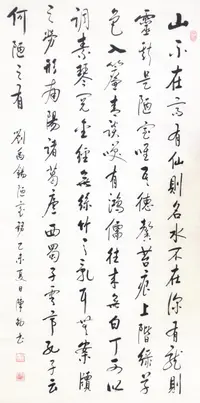 山不在高有仙則名水不在深有龍則
靈斯是陋室唯吾德馨苔痕上階綠草
色入簾青談笑有鴻儒往來無白丁可以
調素琴閱金經無絲竹之亂耳無案牘
之勞形南陽諸葛廬西蜀子雲亭孔子云
何陋之有 劉禹錫陋室銘乙未夏日書